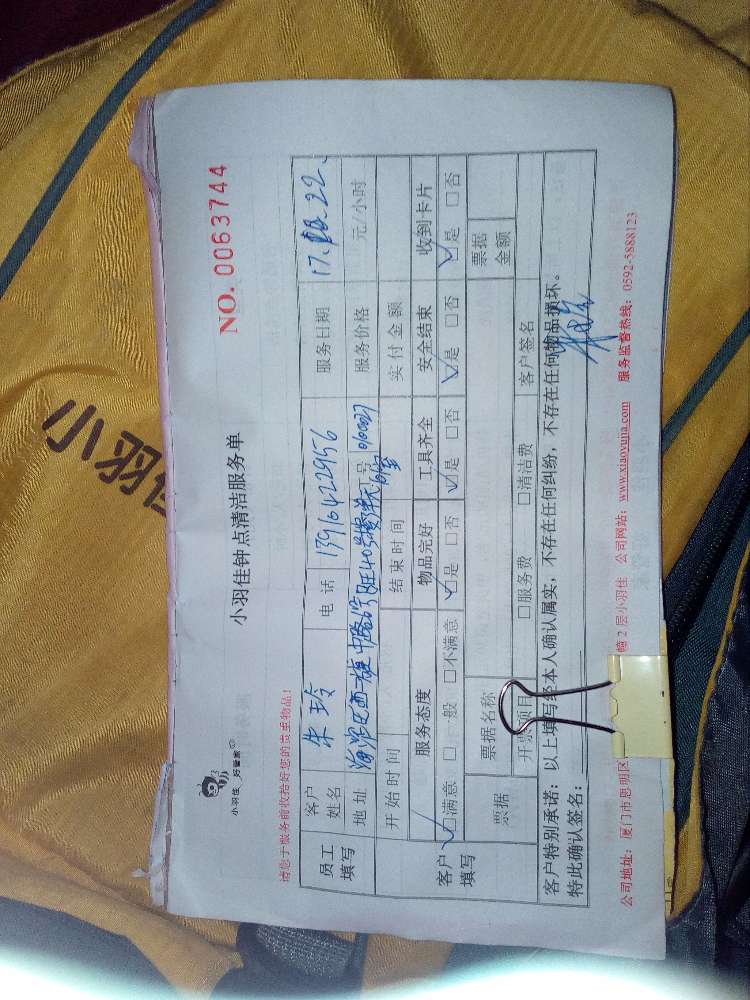 小羽佳 好管家
小羽佳钟点清洁服务单
NO. 0063744
请您于服务前收拾好您的贵重物品！
员工填写
客户姓名 朱玲 电话 13916422956 服务日期 17. 22.
地址 服务价格 元/小时
开始时间 结束时间 实付金额
客户填写
服务态度 物品完好 工具齐全 安全结束 收到卡片
☑满意 □一般 □不满意 ☑是 □否 ☑是 □否 ☑是 □否 ☑是 □否
票据 票据名称 票据金额
开票项目 □服务费 □清洁费 客户签名
客户特别承诺：以上填写经本人确认属实，不存在任何纠纷，不存在任何物品损坏。
特此确认签名：
公司地址：厦门市思明区 幢2层小羽佳 公司网站：www.xiaoyujia.com 服务监督热线：0592-5888123